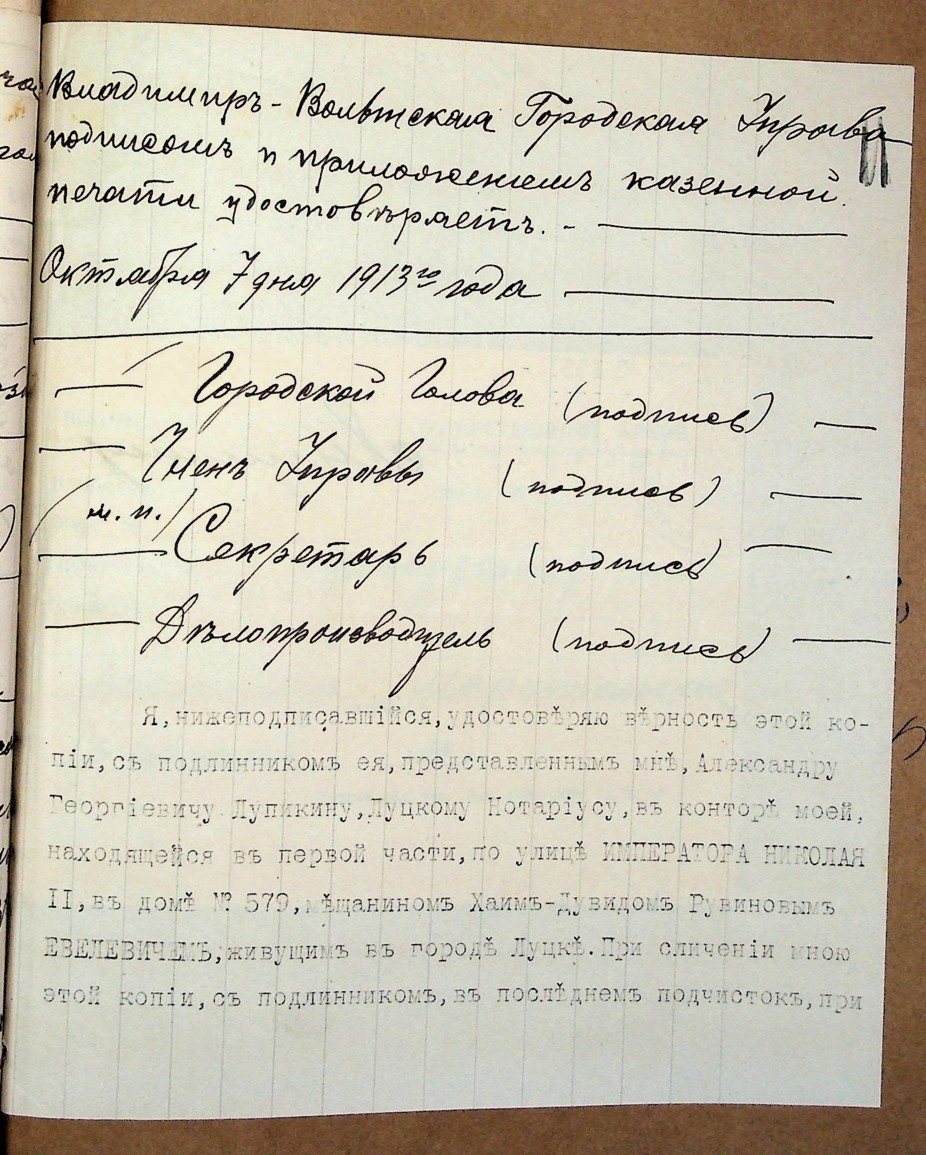 Владимиръ-Волынская Городская Управа
подписомъ и приложеніемъ казенной
печати удостовѣряетъ. -
Октября 7 дня 1913го года
Городской Голова (подпись)
Членъ Управы (подпись)
(м.п.)
Секретарь (подпись)
Дѣлопроизводитель (подпись)
Я,нижеподписавшійся,удостовѣряю вѣрность этой ко-
піи,съ подлинникомъ ея,представленнымъ мнѣ,Александру
Георгіевичу Лупикину,Луцкому Нотаріусу,въ конторѣ моей,
находящейся въ первой части,по улицѣ ИМПЕРАТОРА НИКОЛАЯ
II,въ домѣ № 579,мѣщаниномъ Хаимъ-Дувидомъ Рувиновымъ
ЕВЕЛЕВИЧЕМЪ,живущимъ въ городѣ Луцкѣ.При сличеніи мною
этой копіи,съ подлинникомъ,въ послѣднемъ подчистокъ,при